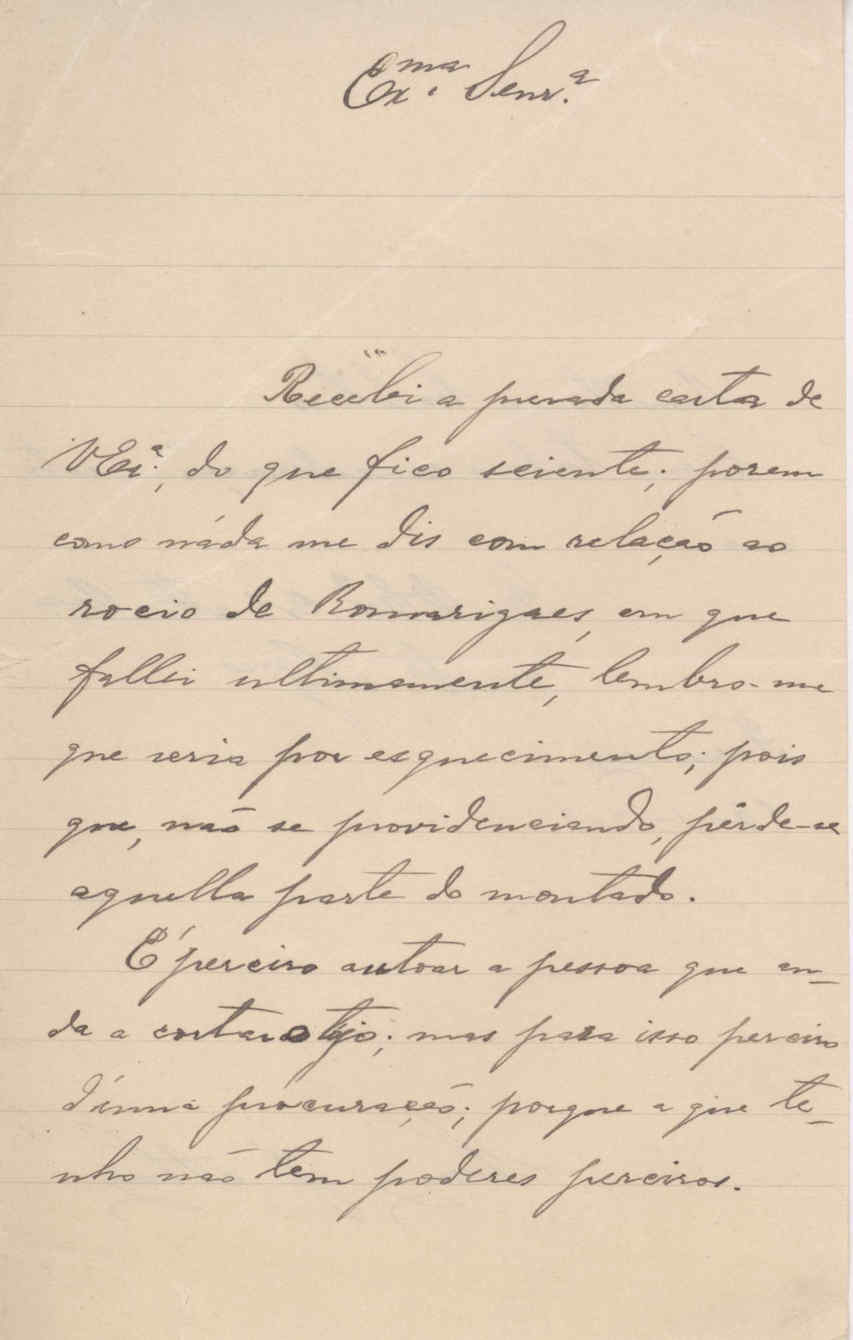 Ex.ma Senr.a
Recebi a presada carta de
VExª., do que fico sciente; porem
como náda me dis com relação ao
rocio de Romarigaes, em que
fallei ultimamente, lembro-me
que seria por esquecimento; pois
que, não se providenciando, pérde-se
aquella parte do montado.
É perciso autoar a pessoa que an-
da a cortar o tojo; mas para isso perciso
d'uma procuração; porque a que te-
nho não tem poderes percisos.